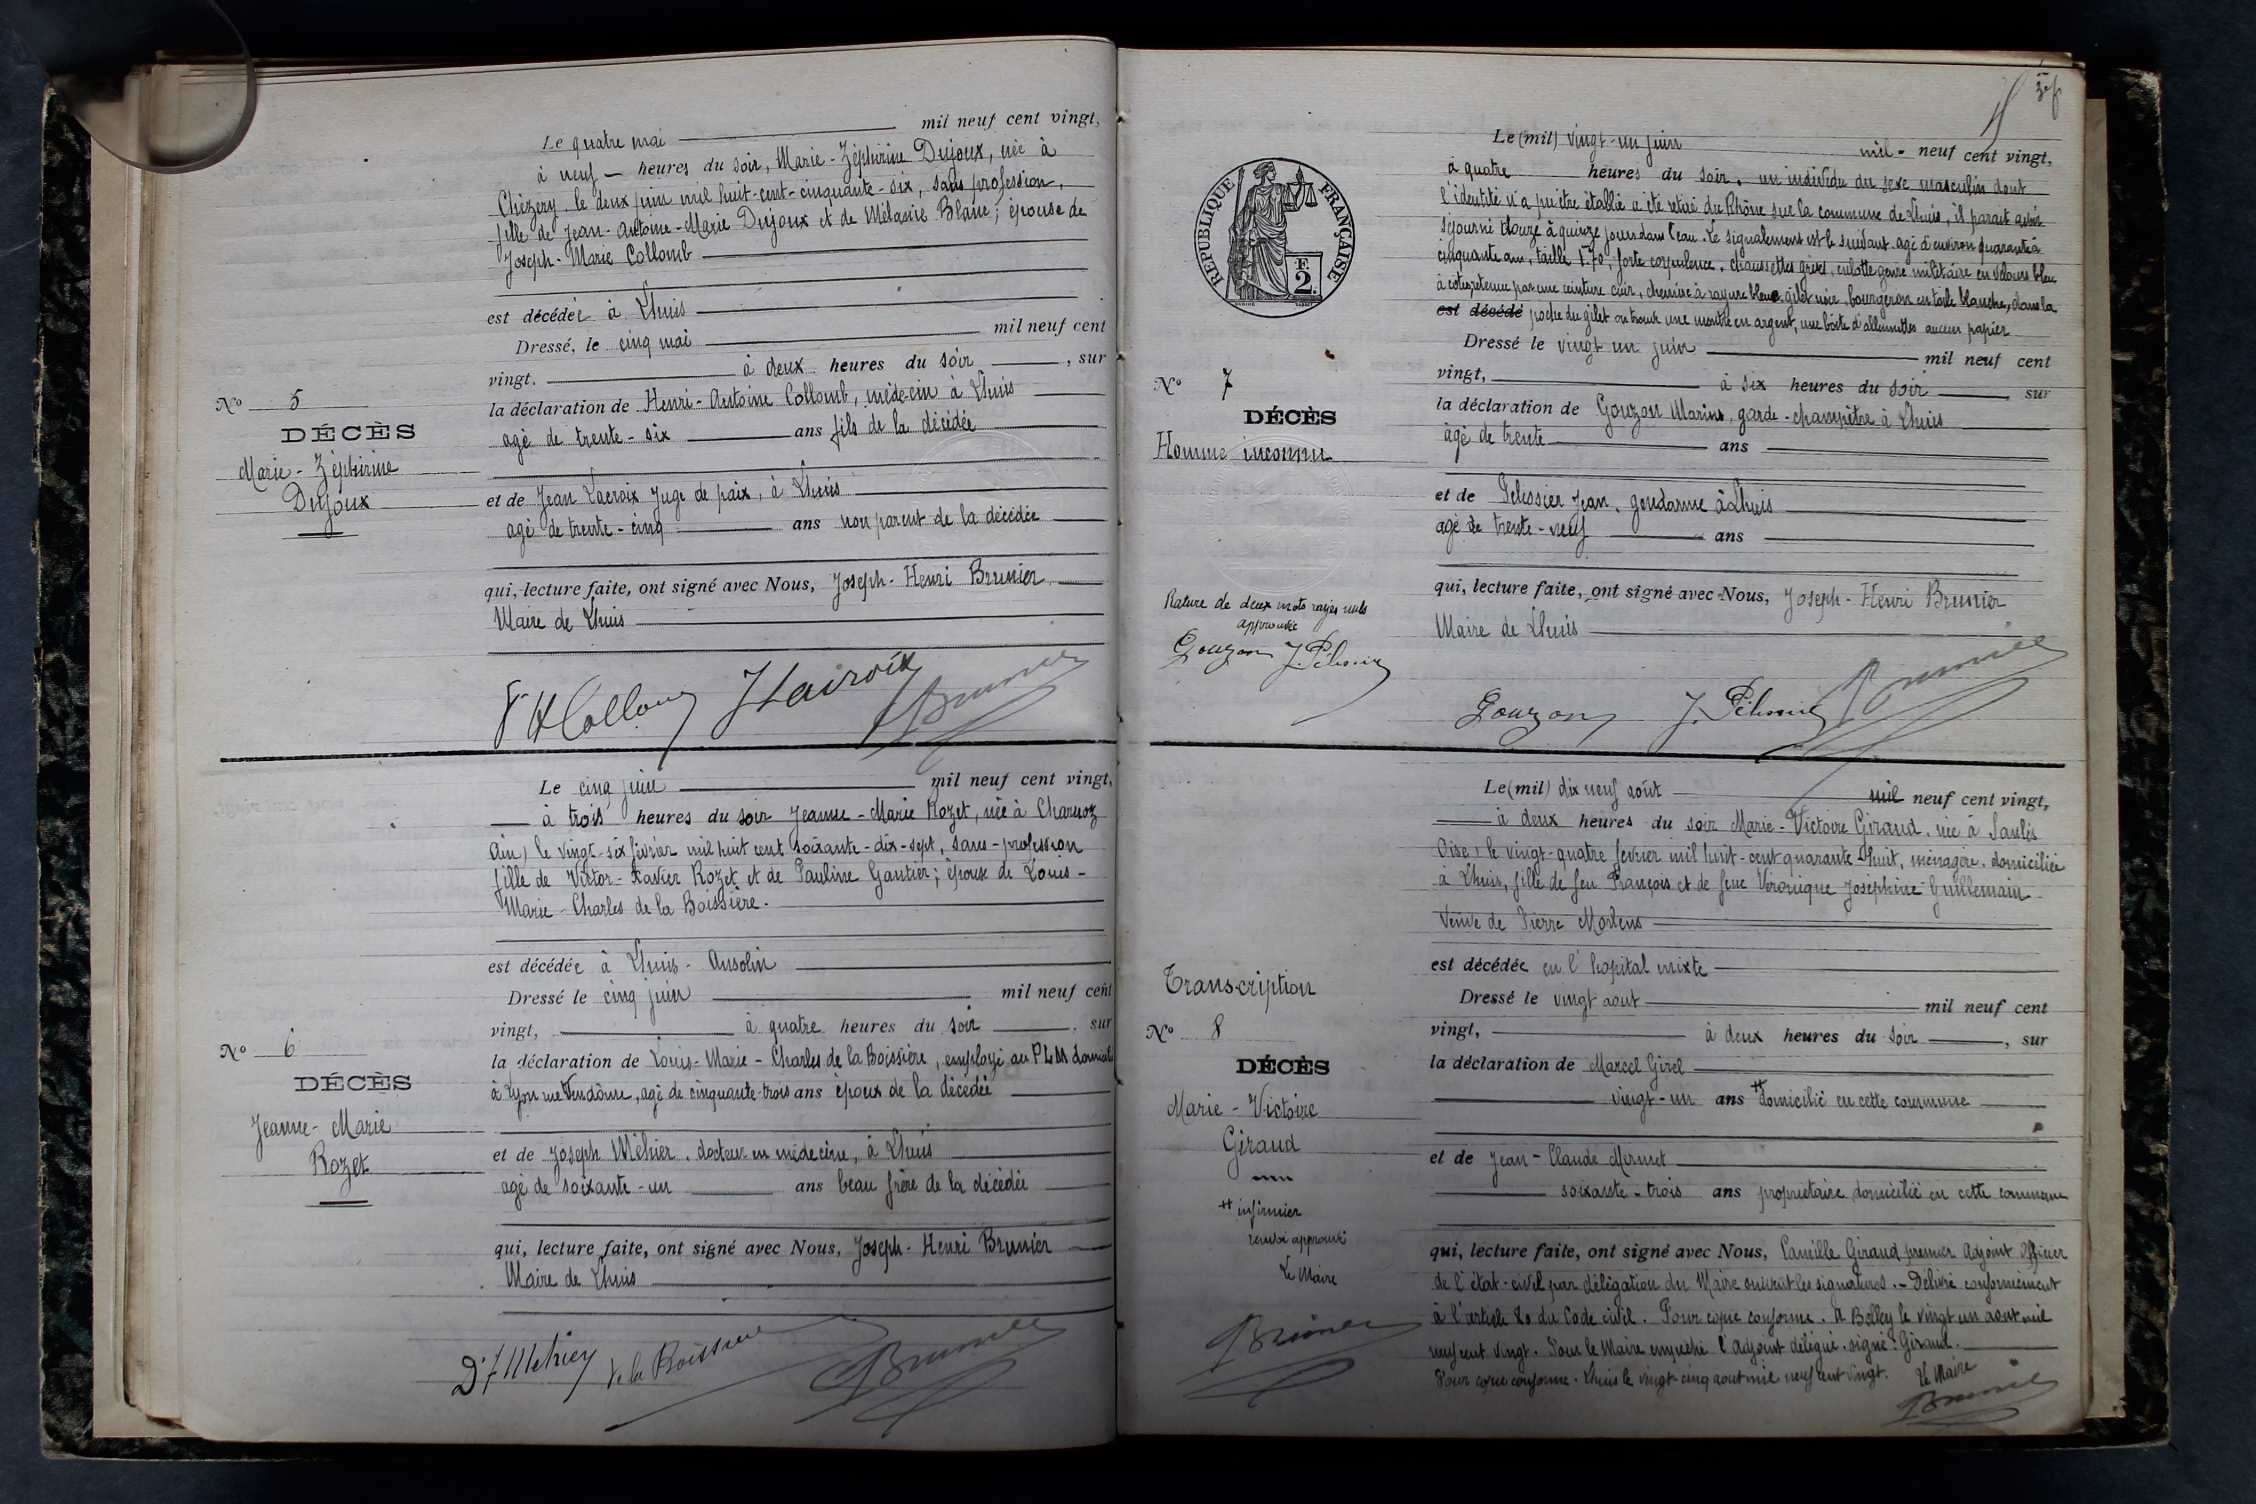 Le quatre mai mil neuf cent vingt,
à neuf heures du soir, Marie-Zéphirine Dujoux, née à
Chézery, le deux juin mil huit-cent-cinquante-six, sans profession,
fille de Jean-Antoine-Marie Dujoux et de Mélanie Blanc; épouse de
Joseph-Marie Collomb
est décédée à Lhuis
Dressé, le cinq mai mil neuf cent
vingt. à deux heures du soir, sur
No 5
la déclaration de Henri-Antoine Collomb, médecin à Lhuis
DÉCÈS
agé de trente-six ans fils de la décédée
Marie-Zéphirine
Dujoux
et de Jean Lacroix Juge de paix, à Lhuis
agé de trente-cinq ans non parent de la décédée
qui, lecture faite, ont signé avec Nous, Joseph-Henri Brunier
Maire de Lhuis
Dr H Collomb J Lacroix Brunier
Le cinq juin mil neuf cent vingt,
à trois heures du soir Jeanne-Marie Rozet, née à Charnoz
Ain) le vingt-six février mil huit cent soixante-dix-sept, sans-profession
fille de Victor-Xavier Rozet et de Pauline Gautier; épouse de Louis-
Marie-Charles de la Boissière.
est décédée à Lhuis-Ansolin
Dressé le cinq juin mil neuf cent
vingt, à quatre heures du soir, sur
No 6
la déclaration de Louis-Marie-Charles de la Boissière, employé au PLM domicilié
DÉCÈS
à Lyon rue Vendôme, agé de cinquante-trois ans époux de la décédée
Jeanne-Marie
Rozet
et de Joseph Méhier, docteur en médecine, à Lhuis
agé de soixante-un ans beau frère de la décédée
qui, lecture faite, ont signé avec Nous, Joseph-Henri Brunier
Maire de Lhuis
Dr J Mehier de la Boissière Brunier
3e f
RÉPUBLIQUE FRANÇAISE
F.
2.
Le (mil) vingt-un juin mil- neuf cent vingt,
à quatre heures du soir, un individu du sexe masculin dont
l'identité n'a pu être établie a été retiré du Rhône sur la commune de Lhuis, il parait avoir
séjourné douze à quinze jours dans l'eau. Le signalement est le suivant. agé d'environ quarante à
cinquante ans, taille 1.70, forte corpulence, chaussettes grises, culotte genre militaire en velours bleu
à côtes, retenue par une ceinture cuir, chemise à rayure bleue, gilet noir, bourgeron en toile blanche, dans la
est décédé poche du gilet on trouve une montre en argent, une boite d'allumettes aucun papier
Dressé le vingt un juin mil neuf cent
vingt, à six heures du soir, sur
No 7
la déclaration de Gouzon Marius, garde-champêtre à Lhuis
DÉCÈS
âgé de trente ans
Homme inconnu
et de Pélissier Jean, gendarme à Lhuis
agé de trente-neuf ans
qui, lecture faite, ont signé avec Nous, Joseph-Henri Brunier
Maire de Lhuis
Rature de deux mots rayés nuls
approuvée
Gouzon J. Pélissier
Gouzon J. Pélissier Brunier
Le (mil) dix neuf août mil neuf cent vingt,
à deux heures du soir Marie-Victoire Giraud, née à
Oise, le vingt-quatre fevrier mil huit-cent quarante-huit, ménagère, domiciliée
à Lhuis, fille de feu François et de feue Véronique Joséphine Guillemain
Veuve de Pierre Mortens
est décédée en l'hopital mixte
Transcription
Dressé le vingt aout mil neuf cent
vingt, à deux heures du soir, sur
No 8
la déclaration de Marcel Girel
DÉCÈS
vingt-un ans # domicilié en cette commune
Marie-Victoire
Giraud
et de Jean-Claude Mermet
soixante-trois ans propriétaire domicilié en cette commune
# infirmier
renvoi approuvé
Le Maire
Brunier
qui, lecture faite, ont signé avec Nous, Camille Giraud premier Adjoint Officier
de l'état-civil par délégation du Maire suivent les signatures. - Délivré conformément
à l'article 80 du Code civil. Pour copie conforme. A Belley le vingt un aout mil
neuf cent vingt. Pour le Maire empêché l'adjoint délégué. signé: Giraud.
Pour copie conforme. Lhuis le vingt-cinq aout mil neuf cent vingt. Le Maire
Brunier